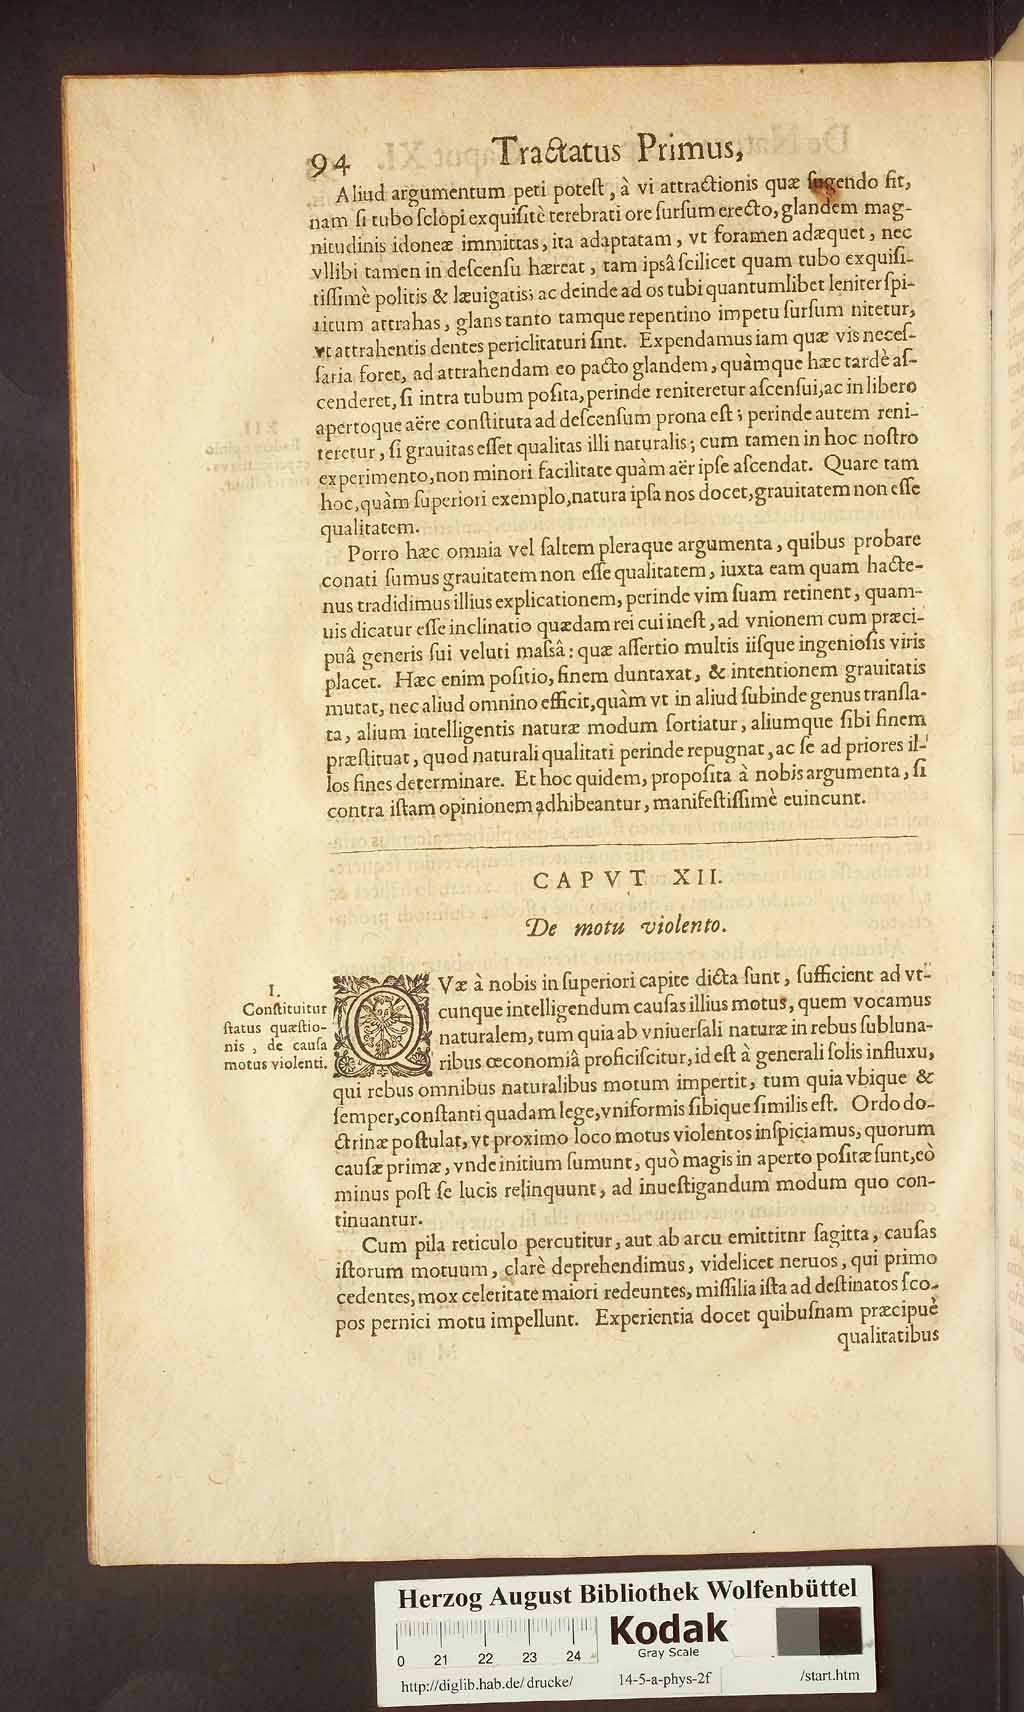 94 Tractatus Primus,
Aliud argumentum peti poteſt, à vi attractionis quæ ſugendo fit,
nam ſi tubo ſclopi exquiſitè terebrati ore ſurſum erecto, glandem mag-
nitudinis idoneæ immittas, ita adaptatam, vt foramen adæquet, nec
vllibi tamen in deſcenſu hæreat, tam ipsâ ſcilicet quam tubo exquiſi-
tiſſimè politis & læuigatis; ac deinde ad os tubi quantumlibet leniter ſpi-
ritum attrahas, glans tanto tamque repentino impetu ſurſum nitetur,
vt attrahentis dentes periclitaturi ſint. Expendamus iam quæ vis neceſ-
ſaria foret, ad attrahendam eo pacto glandem, quàmque hæc tardè aſ-
cenderet, ſi intra tubum poſita, perinde reniteretur aſcenſui, ac in libero
apertoque aëre conſtituta ad deſcenſum prona eſt; perinde autem reni-
teretur, ſi grauitas eſſet qualitas illi naturalis; cum tamen in hoc noſtro
experimento, non minori facilitate quàm aër ipſe aſcendat. Quare tam
hoc, quàm ſuperiori exemplo, natura ipſa nos docet, grauitatem non eſſe
qualitatem.
Porro hæc omnia vel ſaltem pleraque argumenta, quibus probare
conati ſumus grauitatem non eſſe qualitatem, iuxta eam quam hacte-
nus tradidimus illius explicationem, perinde vim ſuam retinent, quam-
uis dicatur eſſe inclinatio quædam rei cui ineſt, ad vnionem cum præci-
puâ generis ſui veluti maſsâ: quæ aſſertio multis iiſque ingenioſis viris
placet. Hæc enim poſitio, finem duntaxat, & intentionem grauitatis
mutat, nec aliud omnino efficit, quàm vt in aliud ſubinde genus tranſla-
ta, alium intelligentis naturæ modum ſortiatur, aliumque ſibi finem
præſtituat, quod naturali qualitati perinde repugnat, ac ſe ad priores il-
los fines determinare. Et hoc quidem, propoſita à nobis argumenta, ſi
contra iſtam opinionem adhibeantur, manifeſtiſſimè euincunt.
CAPVT XII.
De motu violento.
I.
Conſtituitur
ſtatus quæſtio-
nis, de cauſa
motus violenti.
QVæ à nobis in ſuperiori capite dicta ſunt, ſufficient ad vt-
cunque intelligendum cauſas illius motus, quem vocamus
naturalem, tum quia ab vniuerſali naturæ in rebus ſubluna-
ribus œconomiâ proficiſcitur, id eſt à generali ſolis influxu,
qui rebus omnibus naturalibus motum impertit, tum quia vbique &
ſemper, conſtanti quadam lege, vniformis ſibique ſimilis eſt. Ordo do-
ctrinæ poſtulat, vt proximo loco motus violentos inſpiciamus, quorum
cauſæ primæ, vnde initium ſumunt, quò magis in aperto poſitæ ſunt, eò
minus poſt ſe lucis relinquunt, ad inueſtigandum modum quo con-
tinuantur.
Cum pila reticulo percutitur, aut ab arcu emittitnr ſagitta, cauſas
iſtorum motuum, clarè deprehendimus, videlicet neruos, qui primo
cedentes, mox celeritate maiori redeuntes, miſſilia iſta ad deſtinatos ſco-
pos pernici motu impellunt. Experientia docet quibuſnam præcipuè
qualitatibus
Herzog August Bibliothek Wolfenbüttel
0 21 22 23 24
Kodak
Gray Scale
http://diglib.hab.de/drucke/ 14-5-a-phys-2f /start.htm